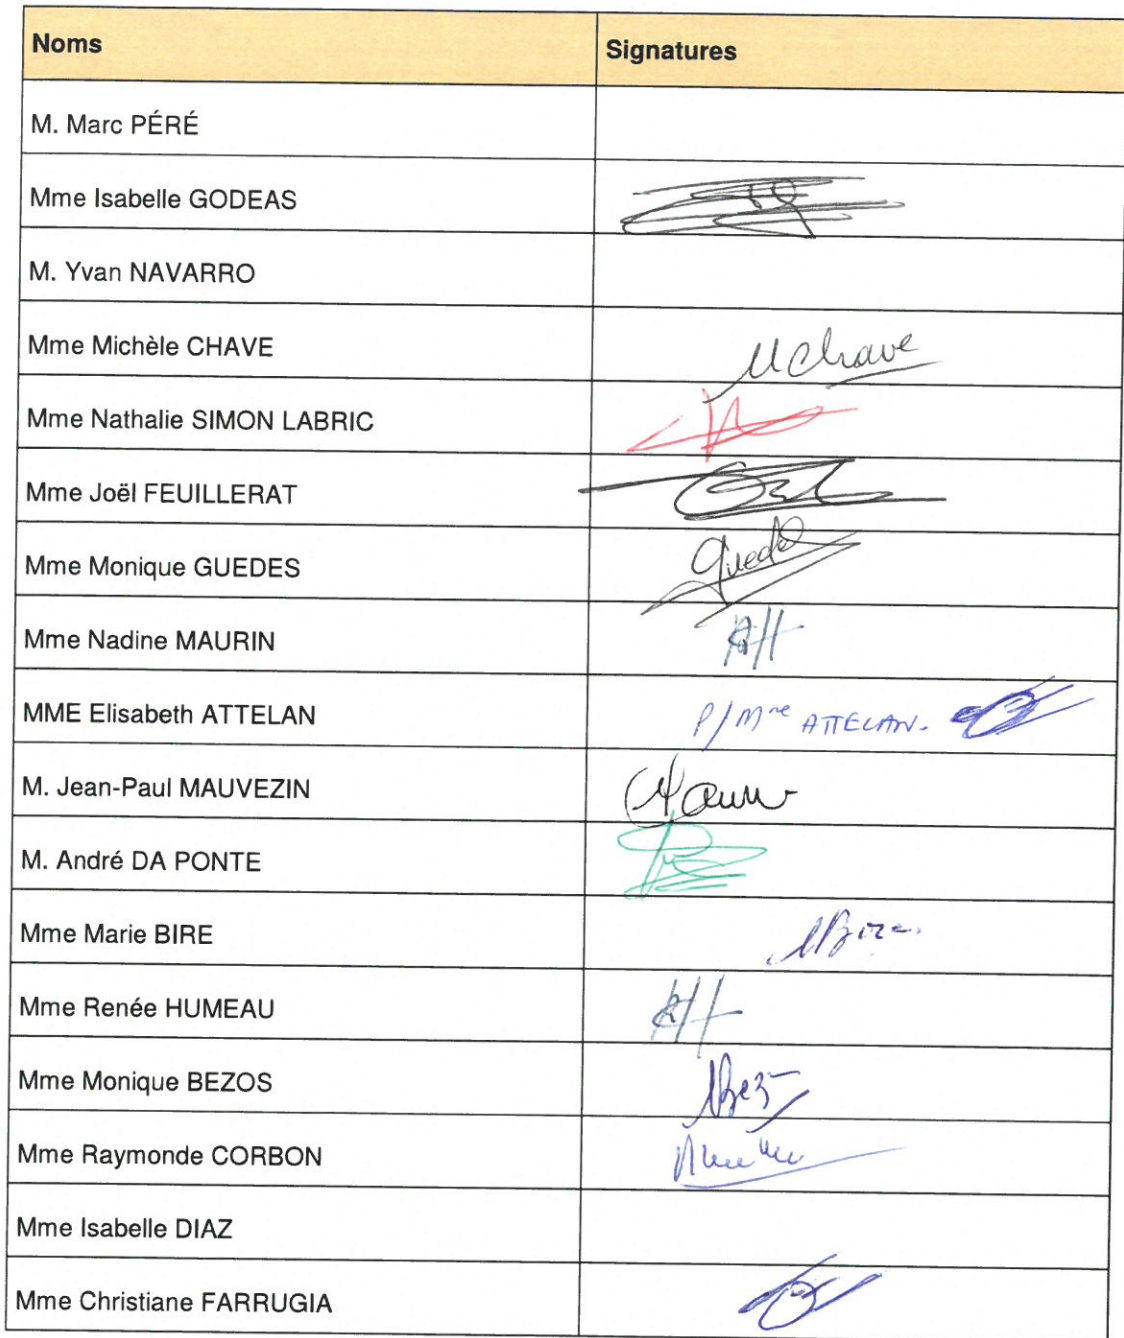 Noms Signatures
M. Marc PÉRÉ
Mme Isabelle GODEAS
M. Yvan NAVARRO
Mme Michèle CHAVE MChave
Mme Nathalie SIMON LABRIC
Mme Joël FEUILLERAT
Mme Monique GUEDES Guedes
Mme Nadine MAURIN
MME Elisabeth ATTELAN P/Mme ATTELAN.
M. Jean-Paul MAUVEZIN
M. André DA PONTE
Mme Marie BIRE MBire
Mme Renée HUMEAU
Mme Monique BEZOS
Mme Raymonde CORBON
Mme Isabelle DIAZ
Mme Christiane FARRUGIA